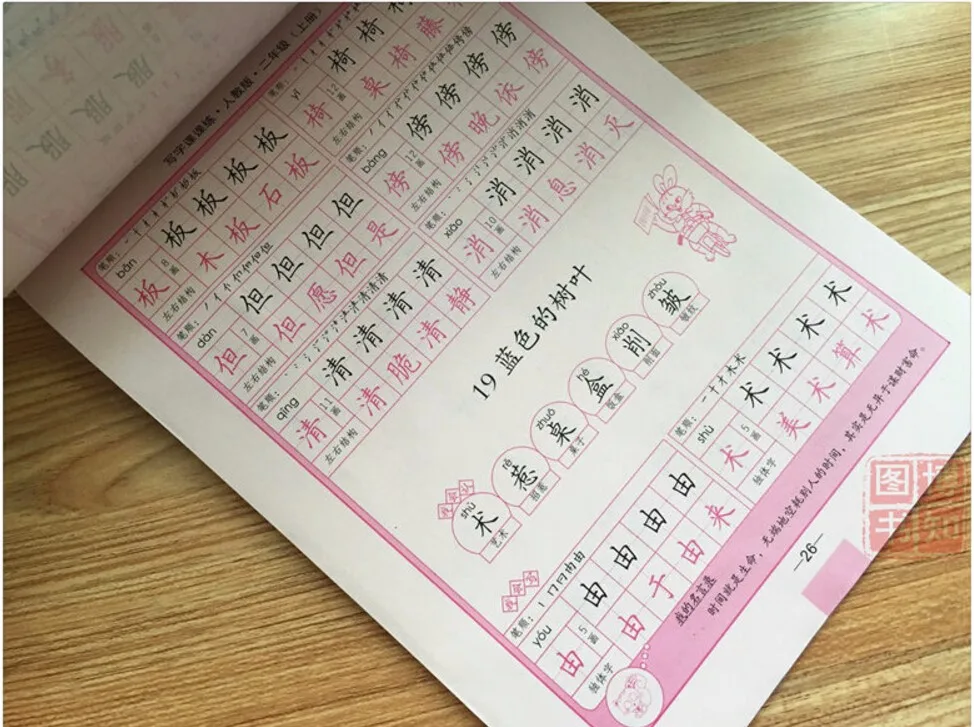 写字课课练·人教版·二年级（上册）
笔顺：
bǎn
8画
板 板 板 板
板 木 板 石 板
左右结构
笔顺：
yǐ
12画
椅 椅
椅 桌 椅 藤
左右结构
笔顺：
dàn
7画
但 但 但 但
但 但 愿 但 是
左右结构
笔顺：
bàng
12画
傍 傍 傍 傍
傍 傍 晚 依 傍
左右结构
笔顺：
qīng
11画
清 清 清 清
清 清 脆 清 静
左右结构
笔顺：
xiāo
10画
消 消 消 消
消 消 息 消 灭
左右结构
19 蓝色的树叶
shù rě zhuō hé xiāo zhòu
术 惹 桌 盒 削 皱
艺术 招惹 桌子 饭盒 削面 皱纹
笔顺：
yóu
5画
由 由 由 由
由 由 于 由 来
独体字
笔顺：一十才木术
shù
5画
术 术 术 术
术 美 术 算 术
独体字
我的名言录
时间就是生命，无端地空耗别人的时间，其实是无异于谋财害命。
—26—